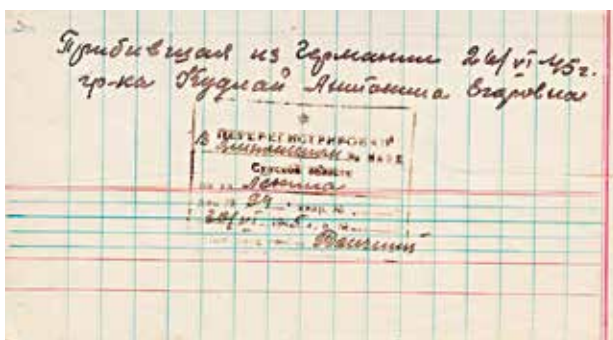 Прибившая из Германии 26/VI 45г.
гр-ка Кудлай Антонина Егоровна
ПЕРЕРЕГИСТРИРОВАН
В
Сумской области
Ленина
24
26/VI